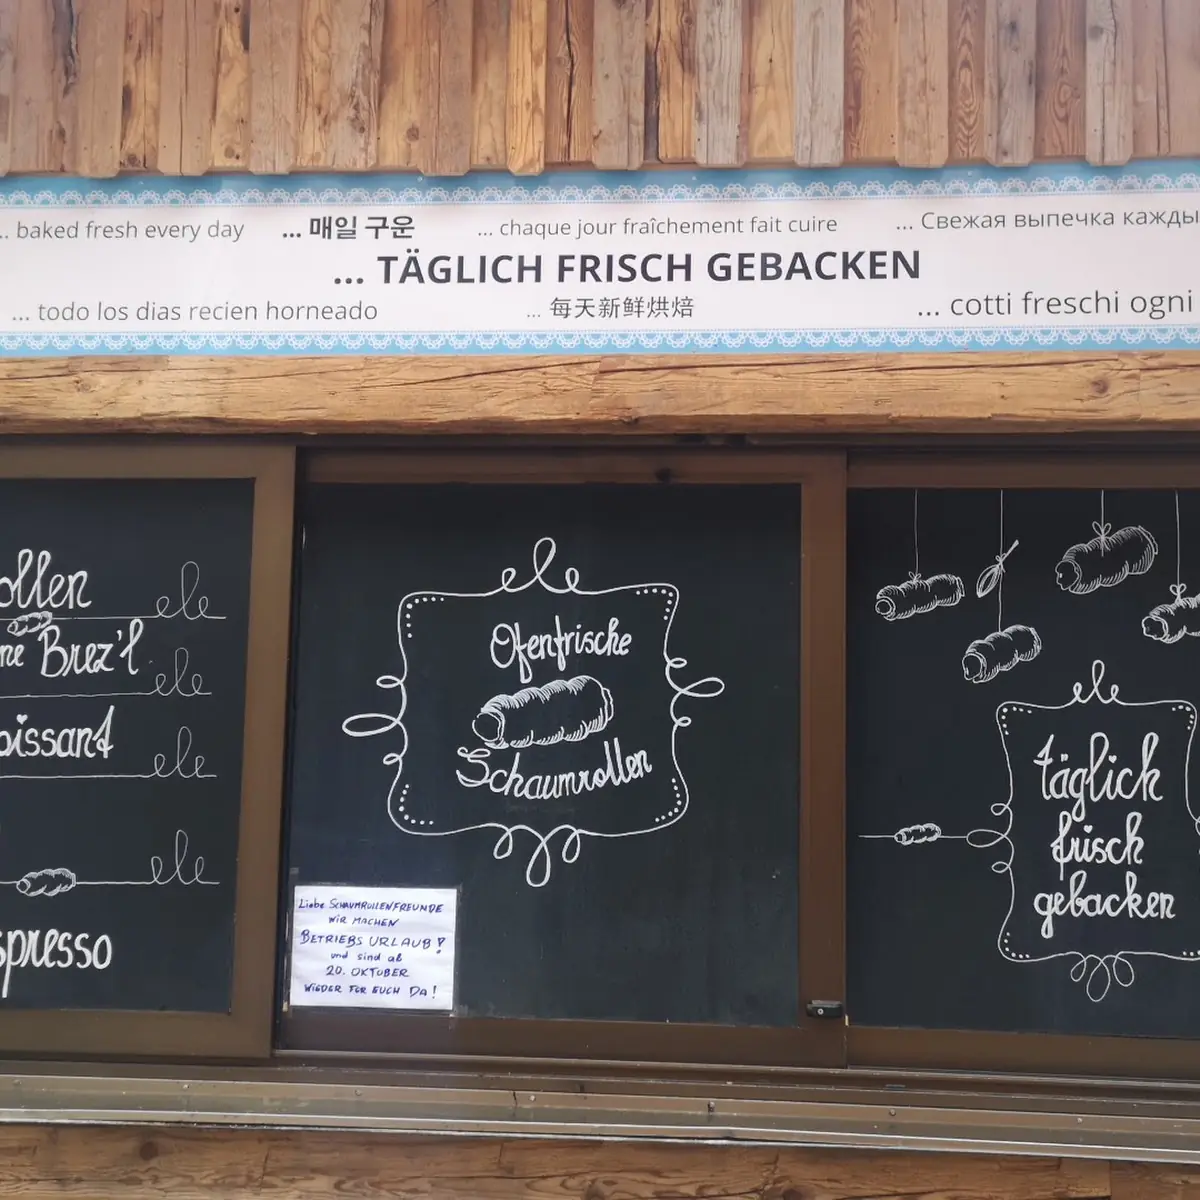 ... baked fresh every day
... 매일 구운
... chaque jour fraîchement fait cuire
... Свежая выпечка кажды
... TÄGLICH FRISCH GEBACKEN
... todo los dias recien horneado
... 每天新鲜烘焙
... cotti freschi ogni
ollen
ne Brez'l
oissant
spresso
Ofenfrische
Schaumrollen
Liebe SCHAUMROLLENFREUNDE
WIR MACHEN
BETRIEBSURLAUB!
und sind ab
20. OKTOBER
WIEDER FÜR EUCH DA!
täglich
frisch
gebacken